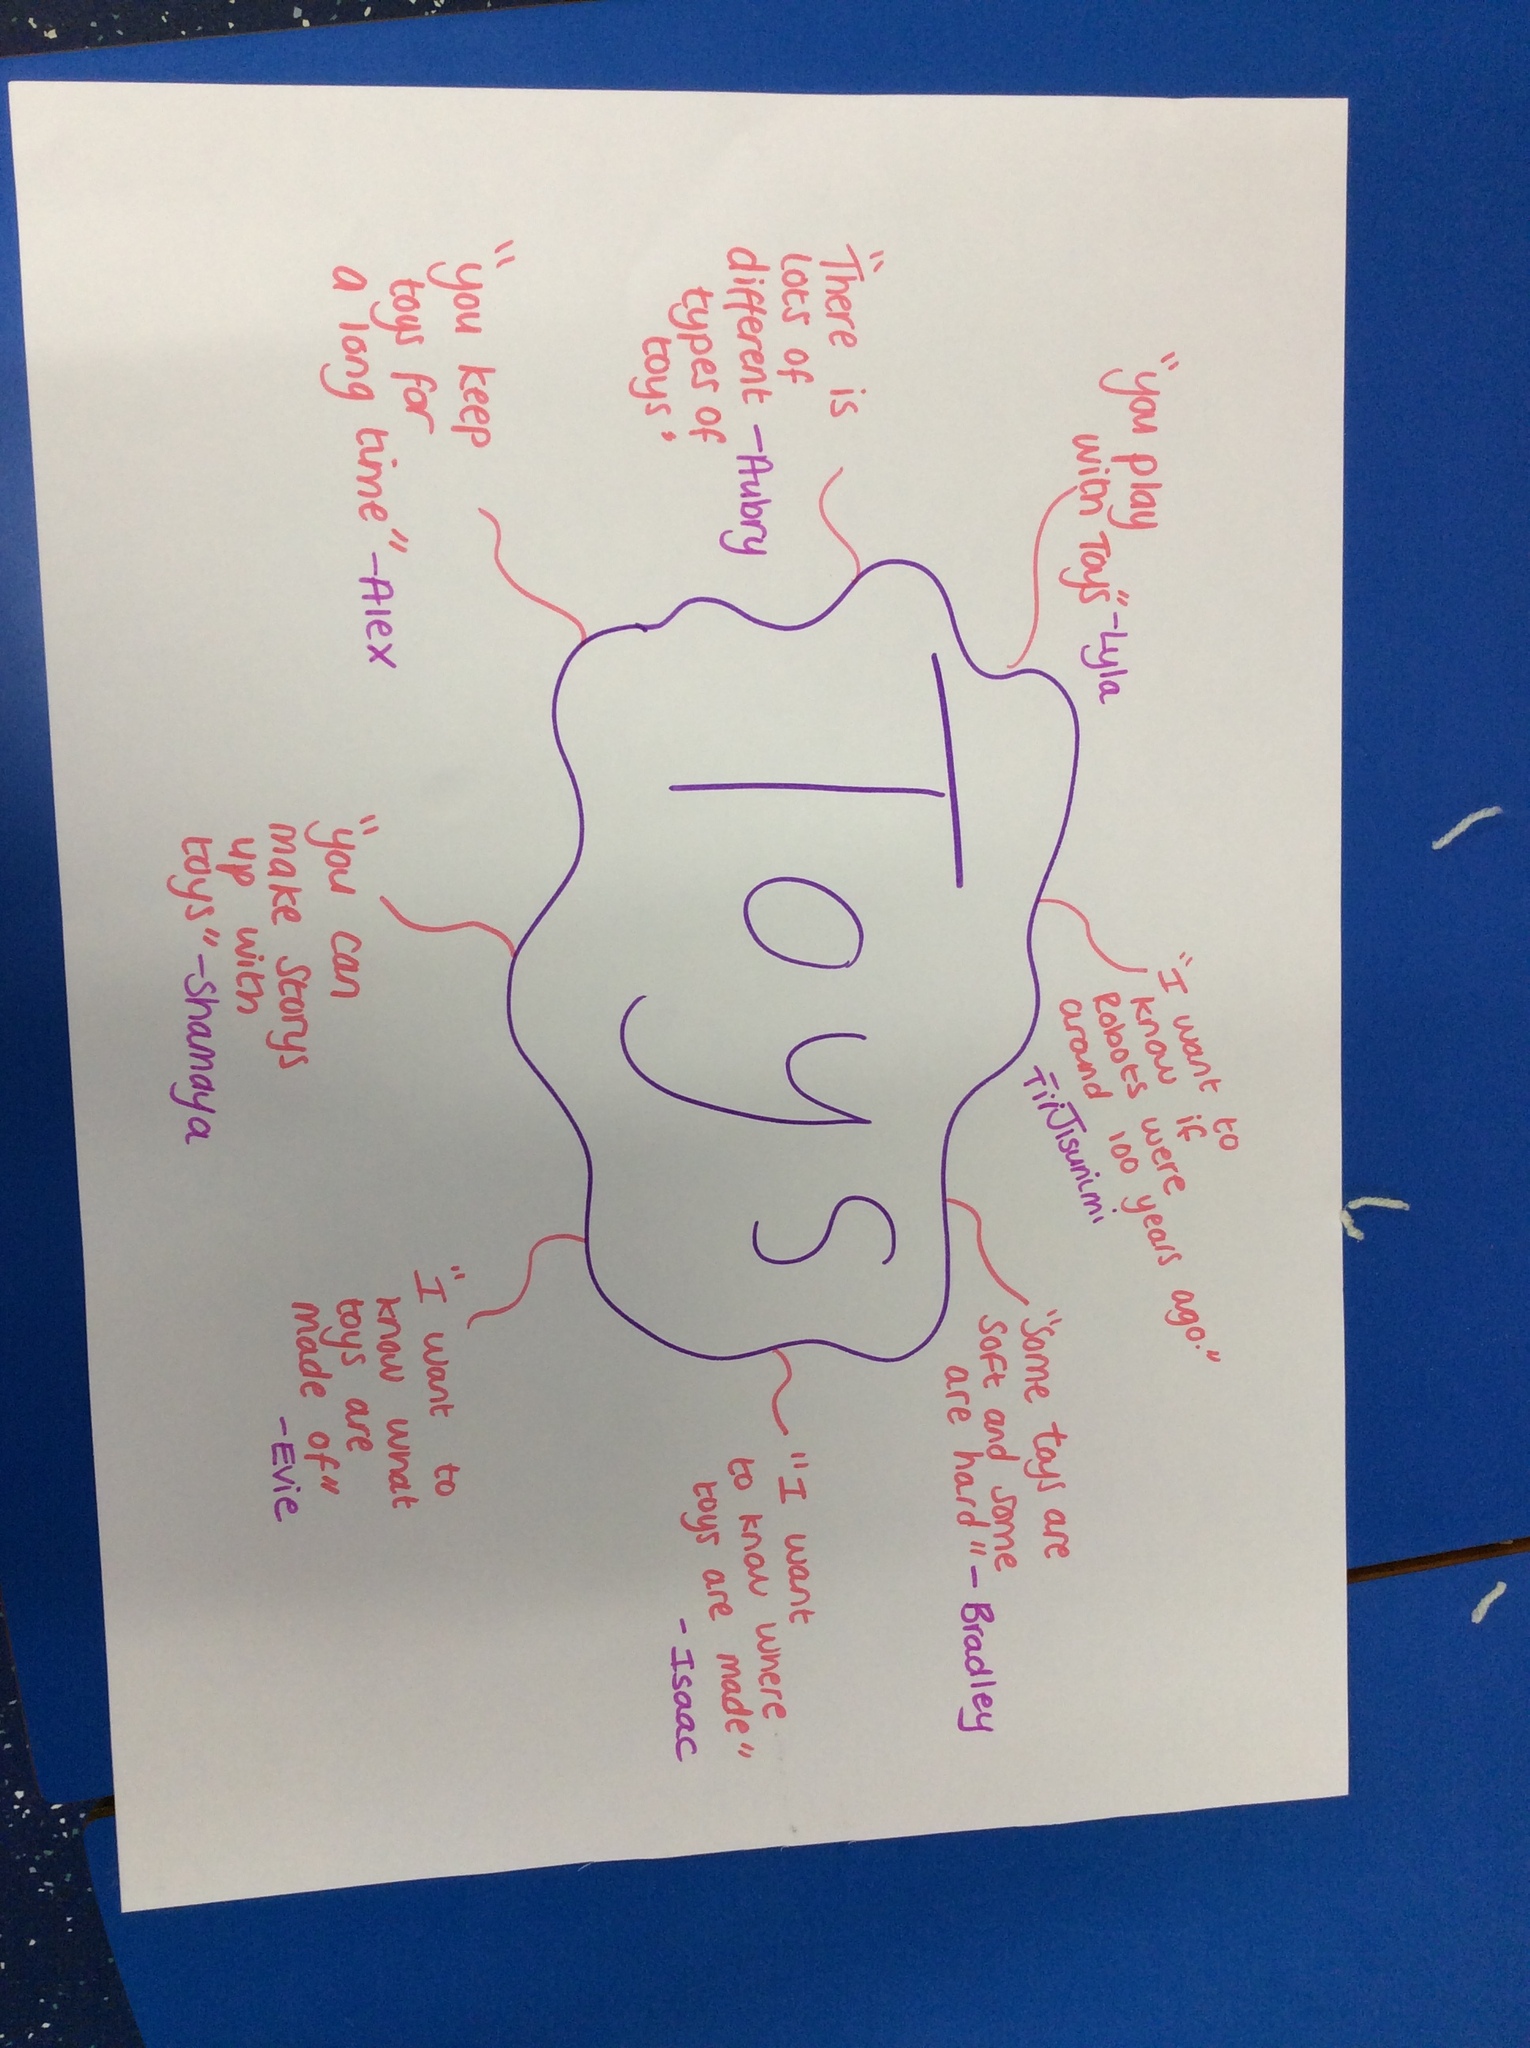 "you play
with Toys" -Lyla
"I want to
know if
Robots were
around 100 years ago."
"There is
lots of
different -Aubry
types of
toys"
TOYS
"Some toys are
soft and some
are hard" - Bradley
"I want
to know where
toys are made"
- Isaac
"you keep
toys for
a long time" -Alex
"you can
make storys
up with
toys" -Shamaya
"I want to
know what
toys are
made of"
-Evie